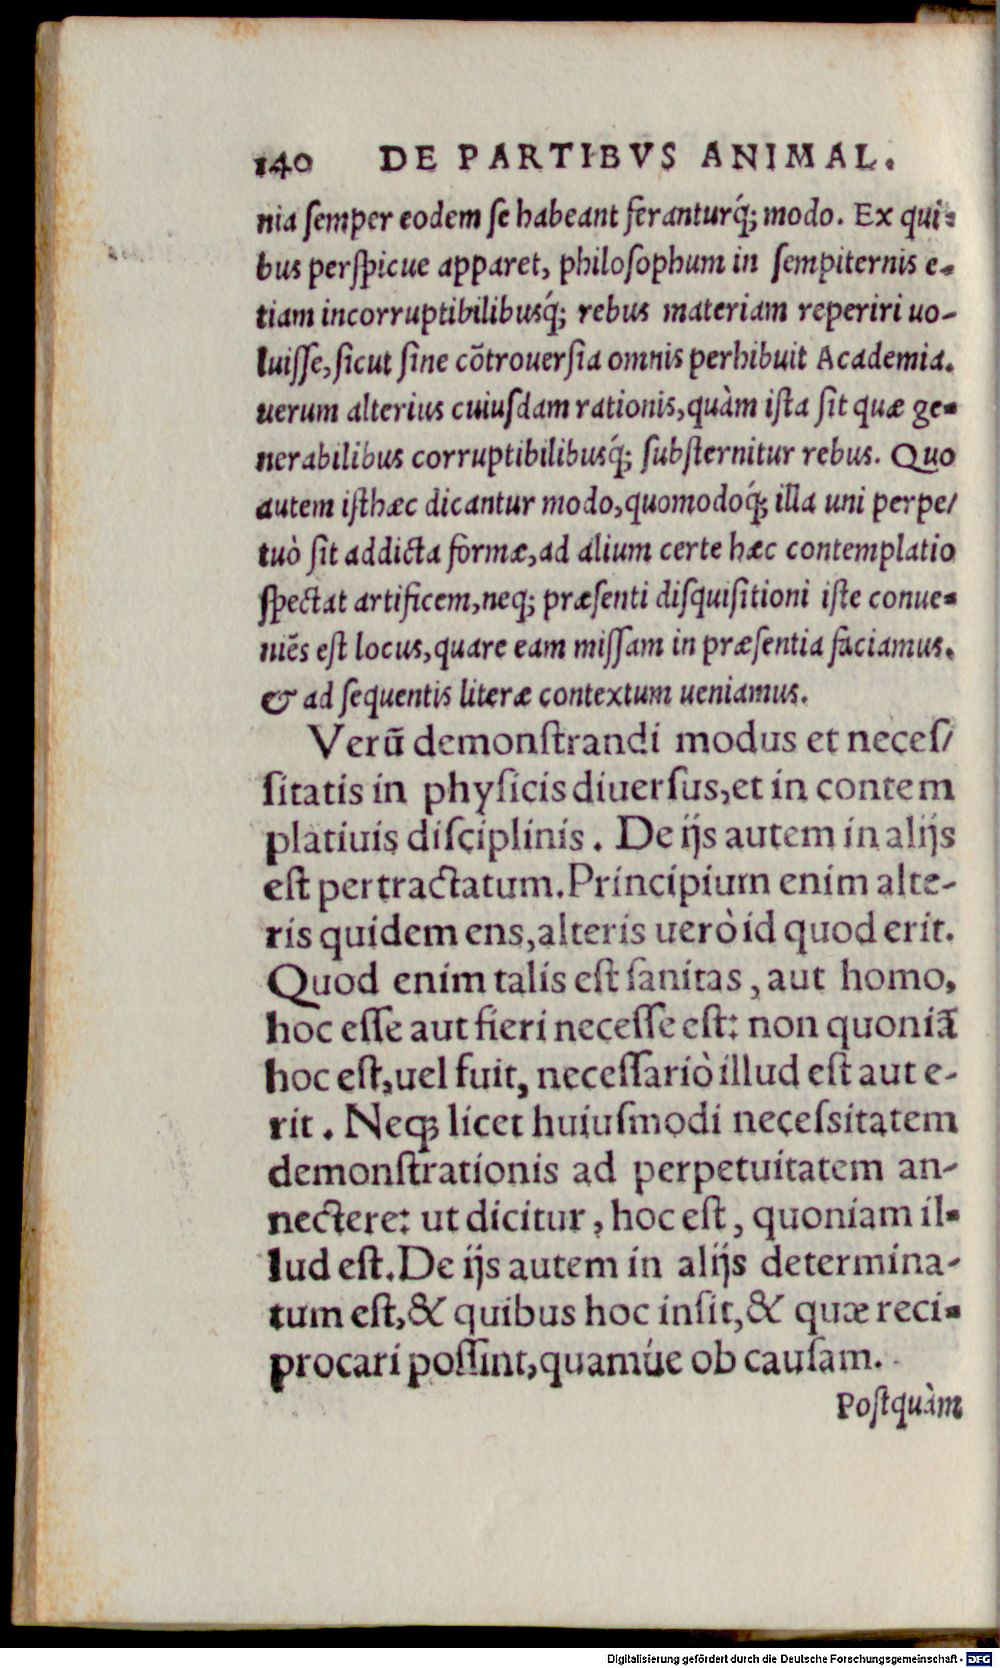 140 DE PARTIBVS ANIMAL.
nia ſemper eodem ſe habeant feranturq́; modo. Ex qui-
bus perſpicue apparet, philoſophum in ſempiternis e-
tiam incorruptibilibusq́; rebus materiam reperiri uo-
luiſſe, ſicut ſine cõtrouerſia omnis perhibuit Academia.
uerum alterius cuiuſdam rationis, quàm iſta ſit quæ ge-
nerabilibus corruptibilibusq́; ſubſternitur rebus. Quo
autem iſthæc dicantur modo, quomodoq́; illa uni perpe/
tuò ſit addicta formæ, ad alium certe hæc contemplatio
ſpectat artificem, neq; præſenti diſquiſitioni iſte conue-
niẽs eſt locus, quare eam miſſam in præſentia faciamus.
& ad ſequentis literæ contextum ueniamus.
Verũ demonſtrandi modus et neceſ/
ſitatis in phyſicis diuerſus, et in contem
platiuis diſciplinis. De ijs autem in alijs
eſt pertractatum. Principium enim alte-
ris quidem ens, alteris uerò id quod erit.
Quod enim talis eſt ſanitas, aut homo,
hoc eſſe aut fieri neceſſe eſt: non quoniã
hoc eſt, uel fuit, neceſſariò illud eſt aut e-
rit. Neq; licet huiuſmodi neceſsitatem
demonſtrationis ad perpetuitatem an-
nectere: ut dicitur, hoc eſt, quoniam il-
lud eſt. De ijs autem in alijs determina-
tum eſt, & quibus hoc inſit, & quæ reci-
procari poſſint, quamúe ob cauſam.
Poſtquàm
Digitalisierung gefördert durch die Deutsche Forschungsgemeinschaft - DFG